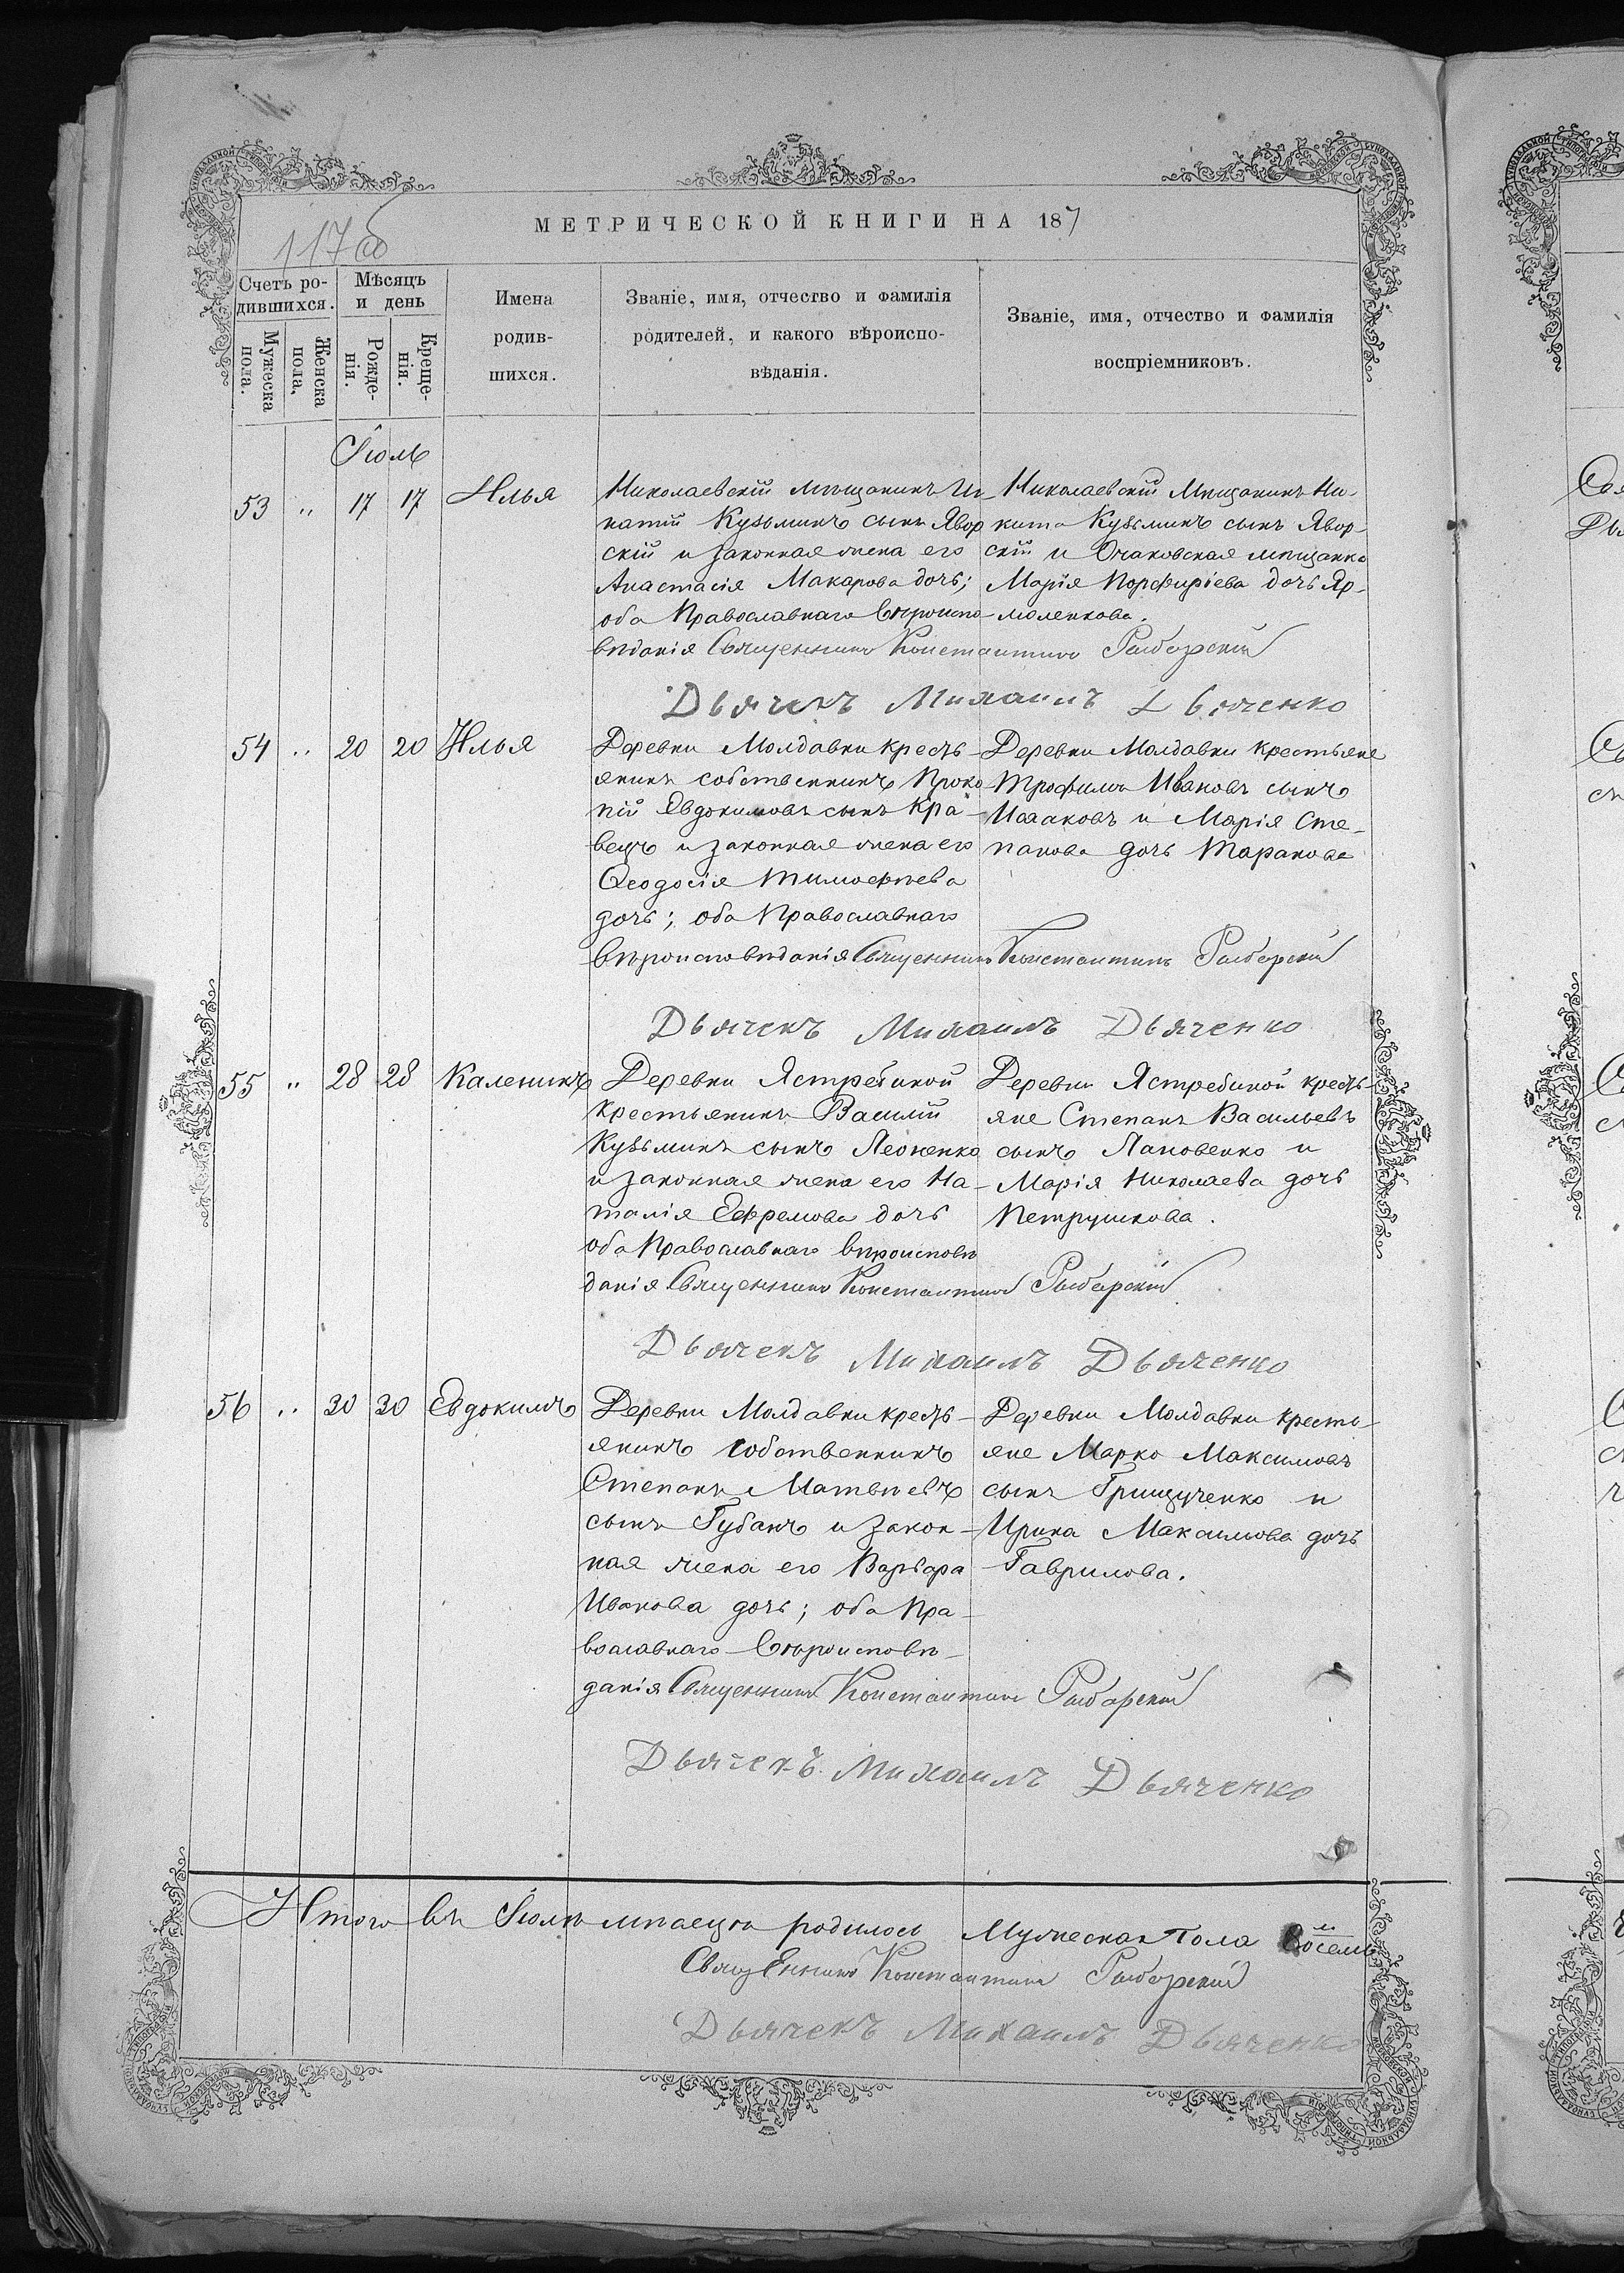 МЕТРИЧЕСКОЙ КНИГИ НА 187
117об
Счетъ ро-
дившихся.
Мужеска пола.
Женска пола.
Мѣсяцъ
и день
Рожде-
нія.
Креще-
нія.
Имена
родив-
шихся.
Званіе, имя, отчество и фамилія
родителей, и какого вѣроиспо-
вѣданія.
Званіе, имя, отчество и фамилія
воспріемниковъ.
Іюль
53 " 17 17 Илья
Николаевскій мѣщанинъ Иг-
натій Кузьминъ сынъ Явор
скій и законная жена его
Анастасія Макарова дочь;
оба Православнаго вѣроиспо-
вѣданія Священникъ Константинъ
Николаевскій Мѣщанинъ Ни-
кита Кузьминъ сынъ Явор-
скій и Очаковская мѣщанка
Марія Порфиріева дочь Яр-
моленкова.
Дьячекъ Михаилъ Дьяченко
54 " 20 20 Илья
Деревни Молдавки кресть-
янинъ собственникъ Проко
пій Евдокимовъ сынъ Кра-
вецъ и законная жена его
Ѳеодосія Тимофѣева
дочь; оба Православнаго
вѣроисповѣданія Священникъ Константинъ
Деревни Молдавки крестьяне
Трофимъ Ивановъ сынъ
Исаковъ и Марія Сте-
панова дочь Таранова
Дьячекъ Михаилъ Дьяченко
55 " 28 28 Каленикъ
Деревни Ястребиной
крестьянинъ Василій
Кузьминъ сынъ Леоненко
и законная жена его На-
талія Ефремова дочь
оба Православнаго вѣроисповѣ
данія Священникъ Константинъ
Деревни Ястребиной кресть-
яне Степанъ Васильевъ
сынъ Лановенко и
Марія Николаева дочь
Петрушкова.
Дьячекъ Михаилъ Дьяченко
56 " 30 30 Евдокимъ
Деревни Молдавки кресть-
янинъ собственникъ
Степанъ Матвѣевъ
сынъ Губанъ и закон-
ная жена его Варвара
Иванова дочь; оба Пра-
вославнаго Вѣроисповѣ-
данія Священникъ Константинъ
Деревни Молдавки кресть-
яне Марко Максимовъ
сынъ Грищученко и
Ирина Максимова дочь
Гаврилова.
Дьячекъ Михаилъ Дьяченко
Итого въ Іюлѣ мѣсяцѣ родилось Мужеска пола Восемь
Священникъ Константинъ
Дьячекъ Михаилъ Дьяченко